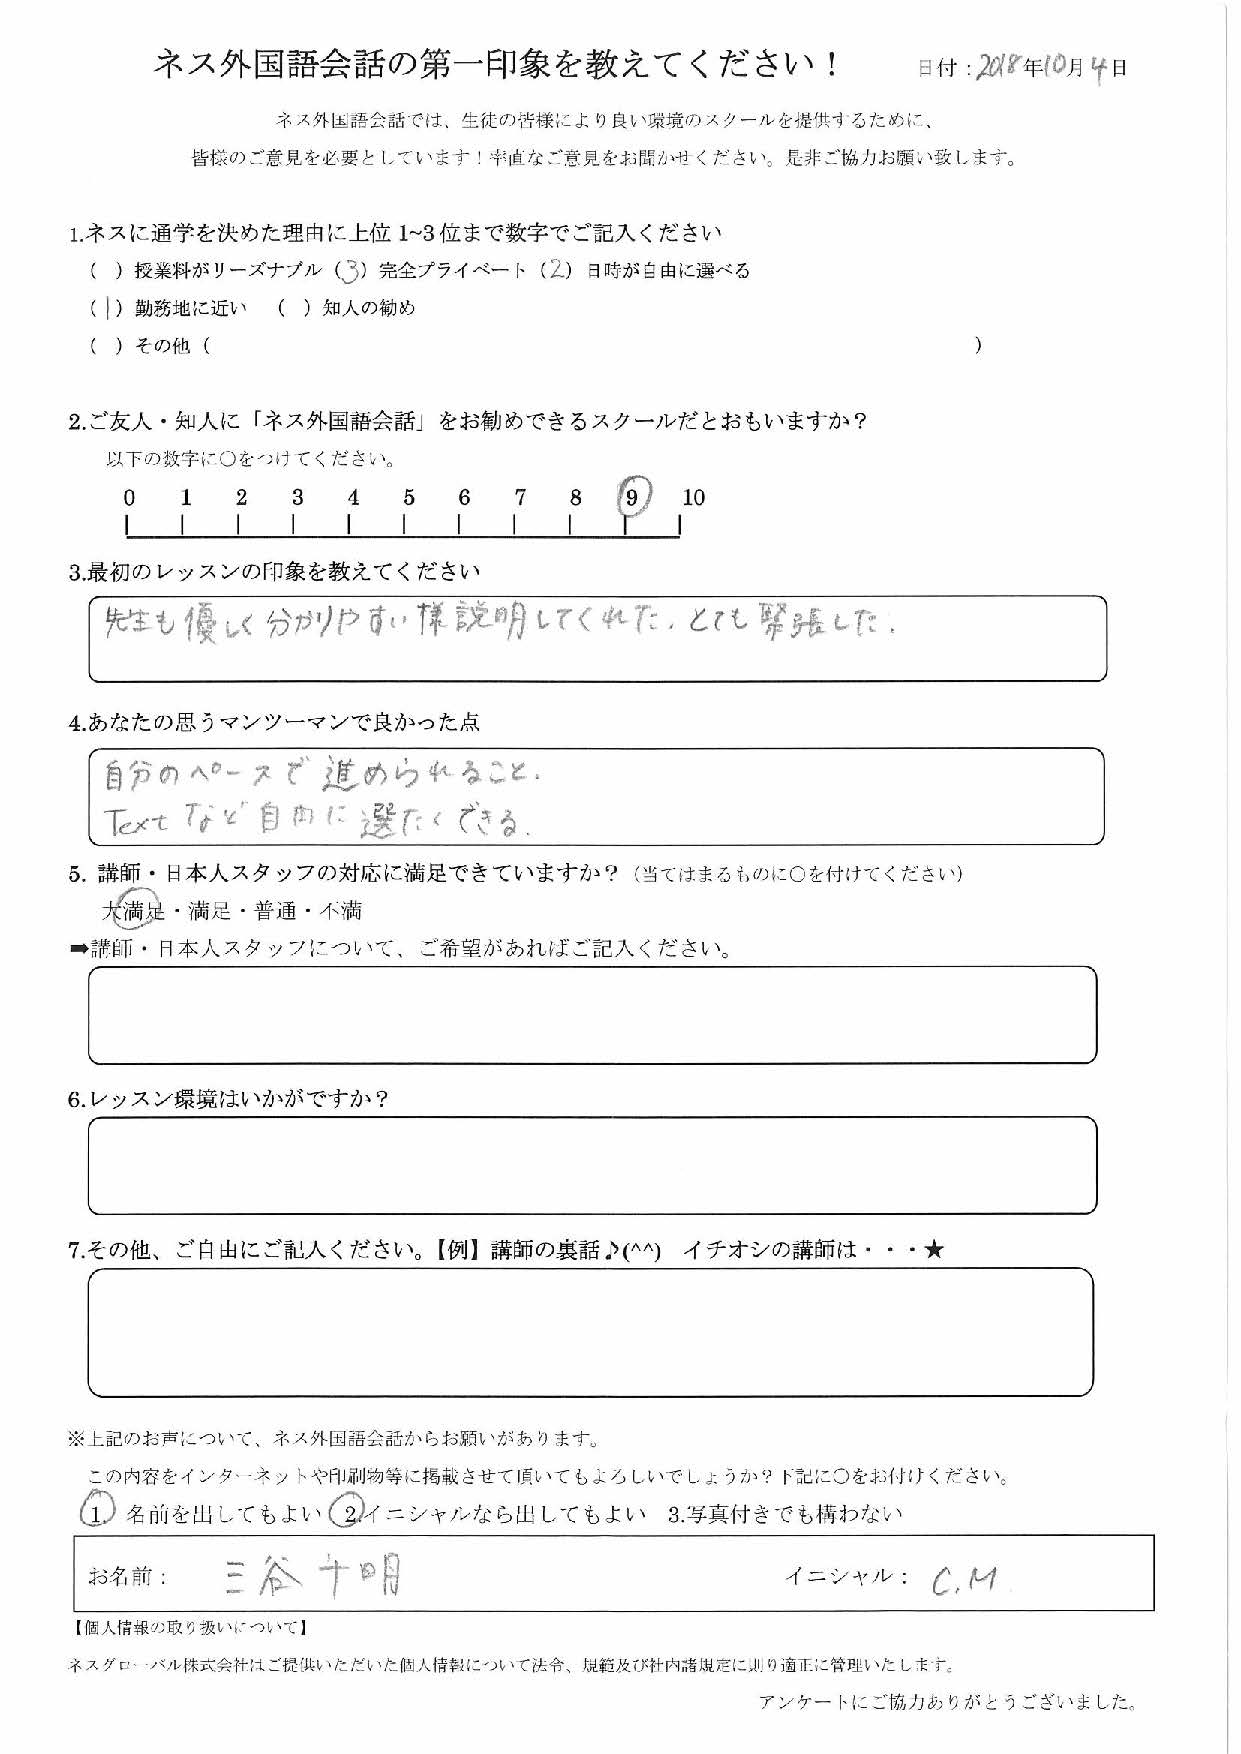 ネス外国語会話の第一印象を教えてください！
日付：2018年10月4日
ネス外国語会話では、生徒の皆様により良い環境のスクールを提供するために、
皆様のご意見を必要としています！率直なご意見をお聞かせください。是非ご協力お願い致します。
1.ネスに通学を決めた理由に上位 1~3 位まで数字でご記入ください
（　）授業料がリーズナブル（3）完全プライベート（2）日時が自由に選べる
（1）勤務地に近い　（　）知人の勧め
（　）その他（　　　）
2.ご友人・知人に「ネス外国語会話」をお勧めできるスクールだとおもいますか？
以下の数字に○をつけてください。
0 1 2 3 4 5 6 7 8 9 10
3.最初のレッスンの印象を教えてください
先生も優しく分かりやすい様説明してくれた。とても緊張した。
4.あなたの思うマンツーマンで良かった点
自分のペースで進められること。
Textなど自由に選たくできる。
5. 講師・日本人スタッフの対応に満足できていますか？（当てはまるものに○を付けてください）
大満足・満足・普通・不満
➡講師・日本人スタッフについて、ご希望があればご記入ください。
6.レッスン環境はいかがですか？
7.その他、ご自由にご記入ください。【例】講師の裏話♪(^^)　イチオシの講師は・・・★
※上記のお声について、ネス外国語会話からお願いがあります。
この内容をインターネットや印刷物等に掲載させて頂いてもよろしいでしょうか？下記に○をお付けください。
1. 名前を出してもよい 2.イニシャルなら出してもよい　3.写真付きでも構わない
お名前：　三谷 千明　イニシャル：　C.M
【個人情報の取り扱いについて】
ネスグローバル株式会社はご提供いただいた個人情報について法令、規範及び社内諸規定に則り適正に管理いたします。
アンケートにご協力ありがとうございました。